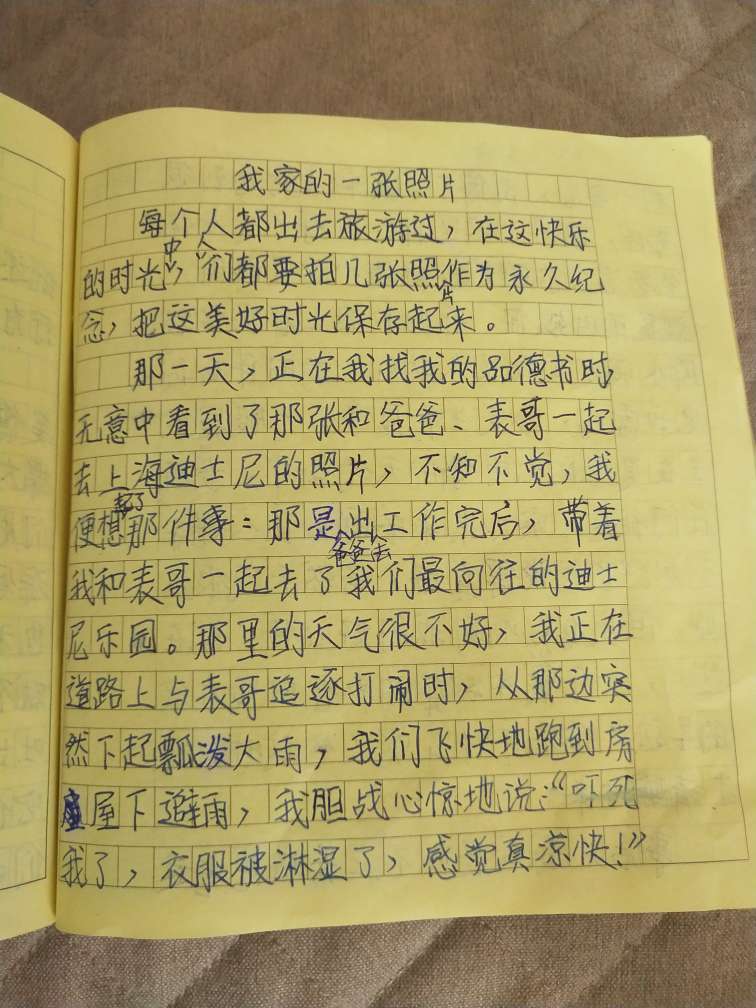 我家的一张照片
每个人都出去旅游过，在这快乐
的时光中，人们都要拍几张照片作为永久纪
念，把这美好时光保存起来。
那一天，正在我找我的品德书时，
无意中看到了那张和爸爸、表哥一起
去上海迪士尼的照片，不知不觉，我
便想起了那件事：那是爸爸去出工作完后，带着
我和表哥一起去了我们最向往的迪士
尼乐园。那里的天气很不好，我正在
道路上与表哥追逐打闹时，从那边突
然下起瓢泼大雨，我们飞快地跑到房
屋下避雨，我胆战心惊地说：“吓死
我了，衣服被淋湿了，感觉真凉快！”